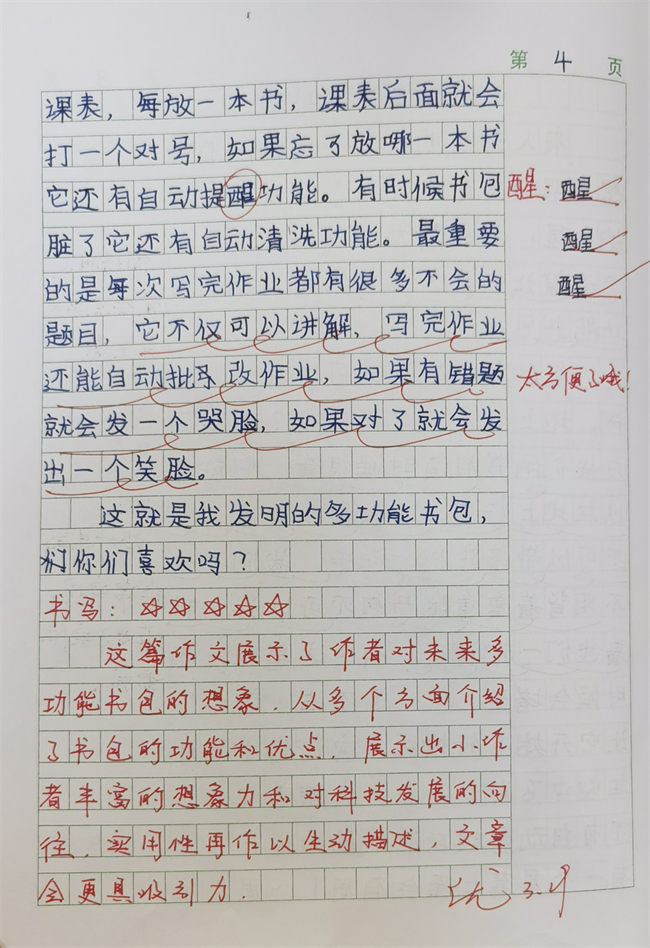 第 4 页
课表，每放一本书，课表后面就会
打一个对号，如果忘了放哪一本书
它还有自动提醒功能。有时候书包
醒：醒
脏了它还有自动清洗功能。最重要
醒
的是每次写完作业都有很多不会的
醒
题目，它不仅可以讲解，写完作业
还能自动批改作业，如果有错题
太方便了哦！
就会发一个哭脸，如果对了就会发
出一个笑脸。
这就是我发明的多功能书包，
你们喜欢吗？
书写：☆☆☆☆☆
这篇作文展示了作者对未来多
功能书包的想象，从多个方面介绍
了书包的功能和优点，展示出小作
者丰富的想象力和对科技发展的向
往，实用性再作以生动描述，文章
会更具吸引力．
优 3.9